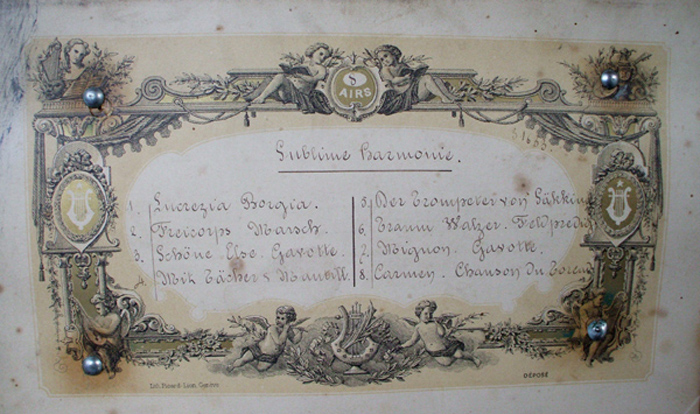 8
AIRS
Sublime Harmonie.
1. Lucrezia Borgia.
2. Freicorps Marsch.
3. Schöne Else. Gavotte.
4. Mit &
5. Der Trompeter von Säkkin
6. Traum Walzer. Feldpredi
7. Mignon. Gavotte.
8. Carmen. Chanson du Torea
Lith. Genève
DÉPOSÉ